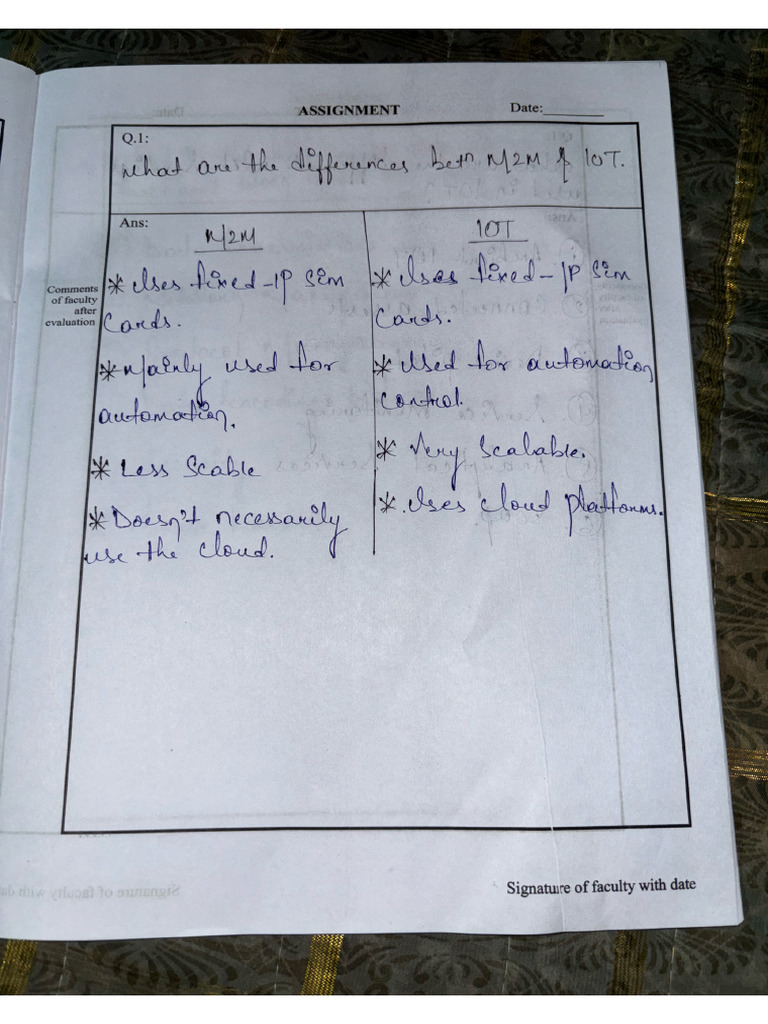 ASSIGNMENT Date:
Q.1:
What are the differences betn M/2M & IOT.
Ans:
M/2M
IOT
Comments
of faculty
after
evaluation
* Uses fixed-IP Sim
Cards.
* Mainly used for
automation.
* Less Scable
* Doesn't necessarily
use the cloud.
* Uses fixed-IP Sim
Cards.
* Used for automation
control.
* Very Scalable.
* Uses cloud platforms.
Signature of faculty with date